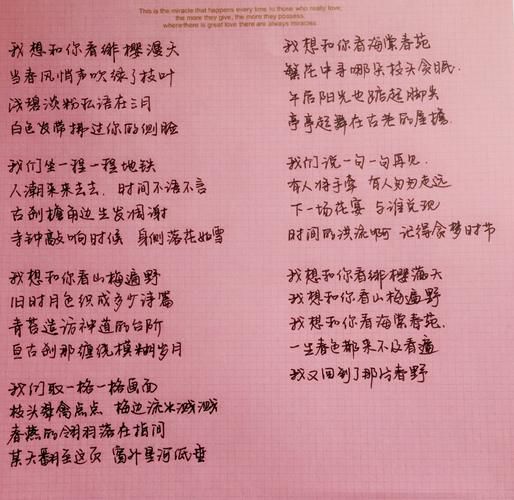 This is the miracle that happens every time to those who really love;
the more they give, the more they possess.
where there is great love there are always miracles
我想和你看绯樱漫天
当春风悄声吹绿了枝叶
浅碧淡粉私语在三月
白色发带拂过你的侧脸
我们坐一程一程地铁
人潮来来去去 时间不语不言
古刹檐角边生发凋谢
寺钟敲响时候 身侧落花如雪
我想和你看山梅遍野
旧时月色织成多少诗篇
青苔造访神道的台阶
亘古刹那缠绕模糊岁月
我们取一格一格画面
枝头翠禽点点 梅边流水溅溅
春燕的翎羽落在指间
某天翻至这页 窗外星河低垂
我想和你看海棠春苑
繁花中寻哪朵枝头贪眠
午后阳光也踮起脚尖
亭亭起舞在古老的屋檐
我们说一句一句再见
有人将手牵 有人匆匆走远
下一场花宴 与谁兑现
时间的洪流啊 记得贪梦时节
我想和你看绯樱漫天
我想和你看山梅遍野
我想和你看海棠春苑
一生春色都来不及看遍
我又回到了那片春野